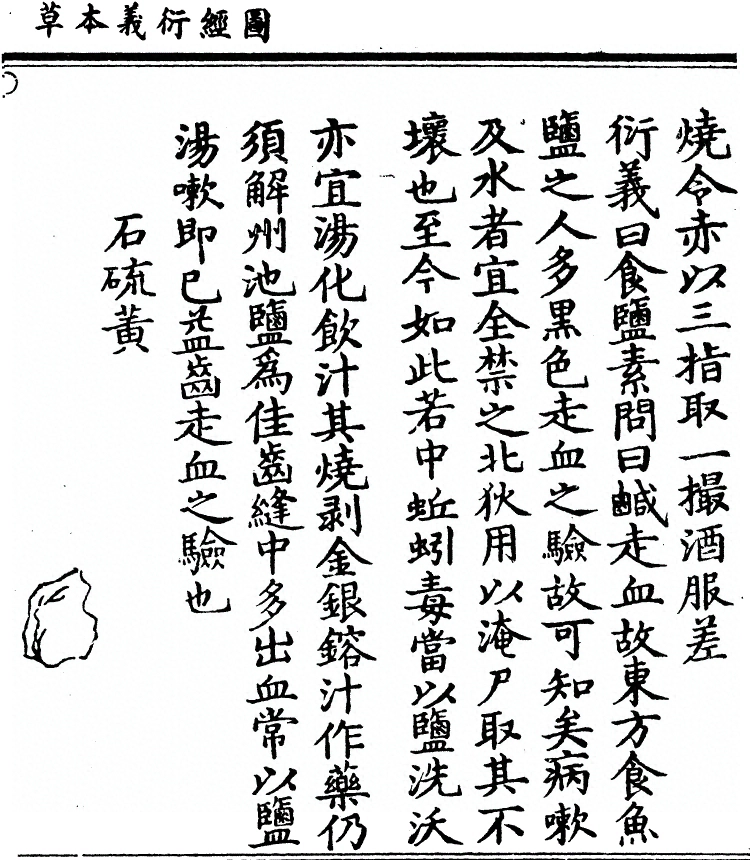 圖經衍義本草
燒令赤以三指取一撮酒服差
衍義曰食鹽素問曰鹹走血故東方食魚
鹽之人多黑色走血之驗故可知矣病嗽
及水者宜全禁之北狄用以淹尸取其不
壞也至今如此若中蚯蚓毒當以鹽洗沃
亦宜湯化飲汁其燒剥金銀鎔汁作藥仍
須解州池鹽爲佳齒縫中多出血常以鹽
湯嗽即已益齒走血之驗也
石硫黃